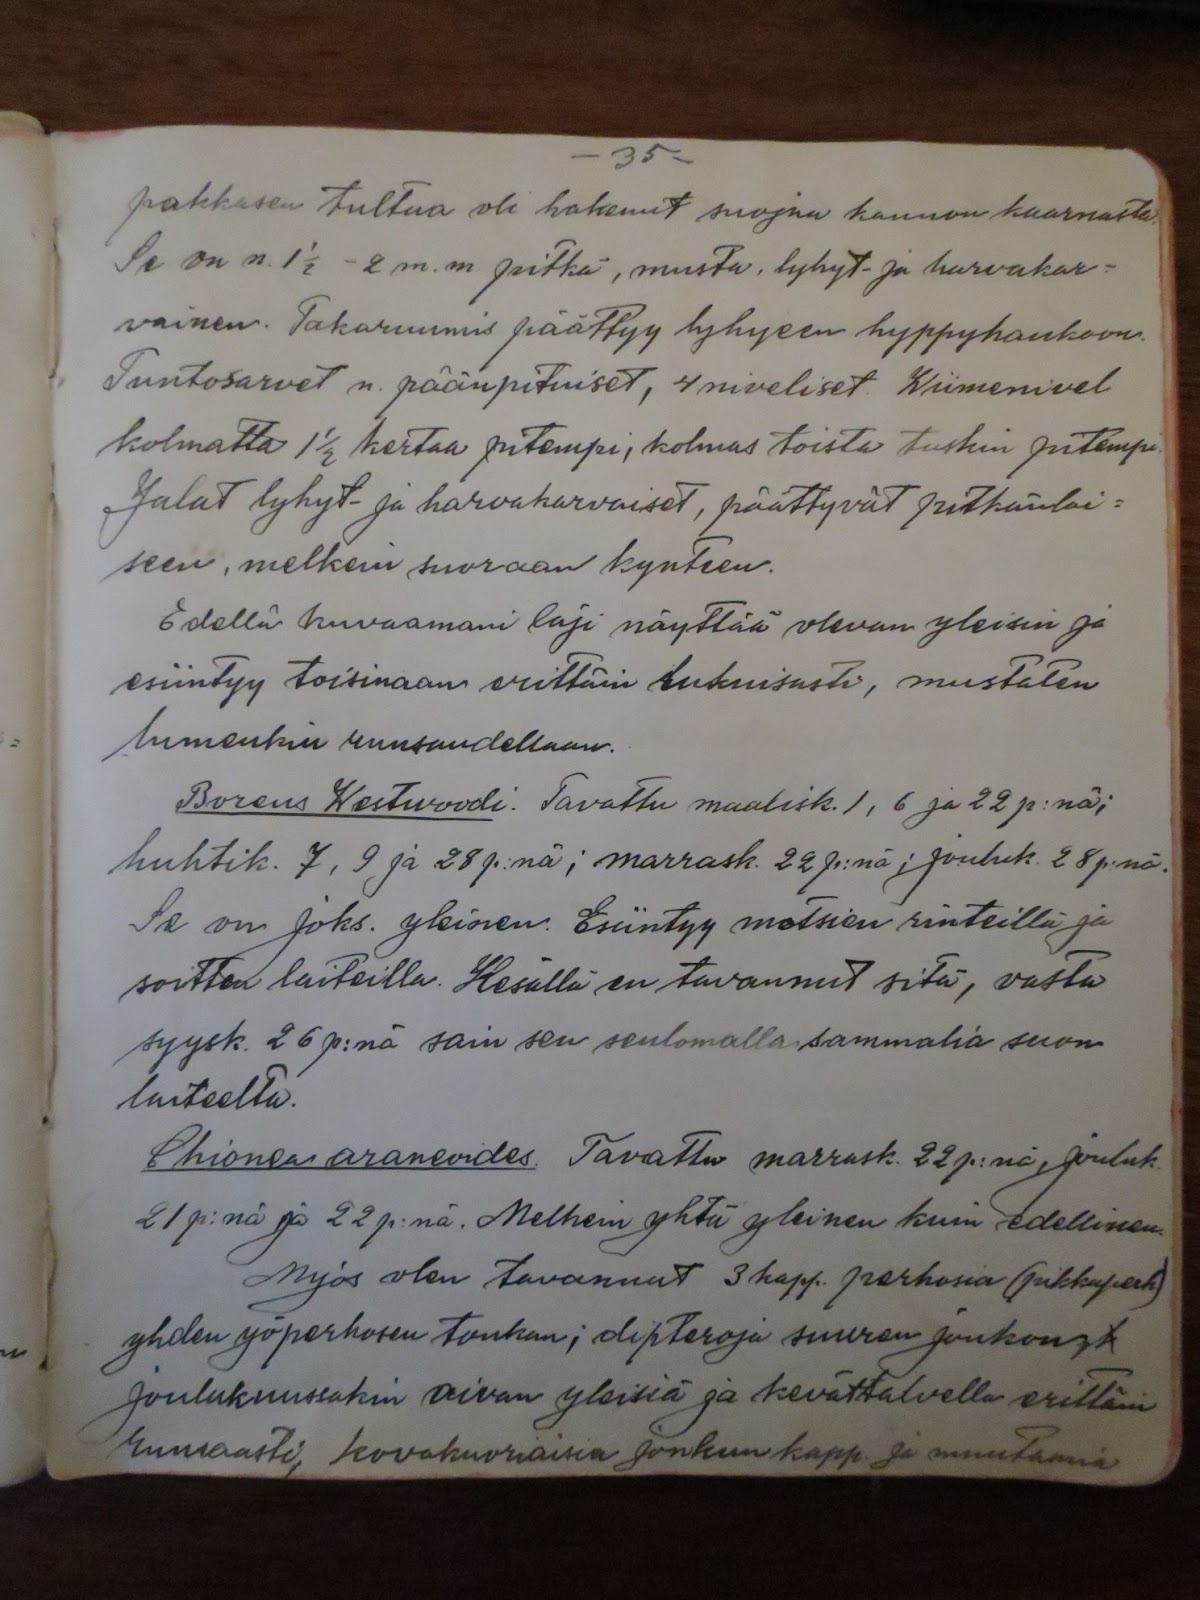 - 35 -
pakkasen tultua oli hakenut suojaa kannon kaarnasta.
Se on n. 1½ - 2 m.m pitkä, musta, lyhyt- ja harvakar=
vainen. Takaruumis päättyy lyhyeen hyppyhankoon.
Tuntosarvet n. päänpituiset, 4 niveliset. Kiimenivel
kolmatta 1½ kertaa pitempi, kolmas toista tuskin pitempi.
Jalat lyhyt- ja harvakarvaiset, päättyvät pitkänlai=
seen, melkein suoraan kynteen.
Edellä kuvaamani laji näyttää olevan yleisin ja
esiintyy toisinaan erittäin lukuisasti, mustaten
lumenkin runsaudellaan.
Boreus Westwoodi. Tavattu maalisk. 1, 6 ja 22 p:nä;
huhtik. 7, 9 ja 28 p:nä; marrask. 22 p:nä; jouluk. 28 p:nä.
Se on joks. yleinen. Esiintyy metsien rinteillä ja
soitten laiteilla. Kesällä en tavannut sitä, vasta
syysk. 26 p:nä sain sen seulomalla sammalia suon
laiteelta.
Chionea araneoides. Tavattu marrask. 22 p:nä, jouluk.
21 p:nä ja 22 p:nä. Melkein yhtä yleinen kuin edellinen.
Myös olen tavannut 3 kapp. perhosia (pikkuperh)
yhden yöperhosen toukan; dipteroja suuren joukon,
joulukuussakin aivan yleisiä ja kevättalvella erittäin
runsaasti, kovakuoriaisia jonkun kapp. ja muutamia